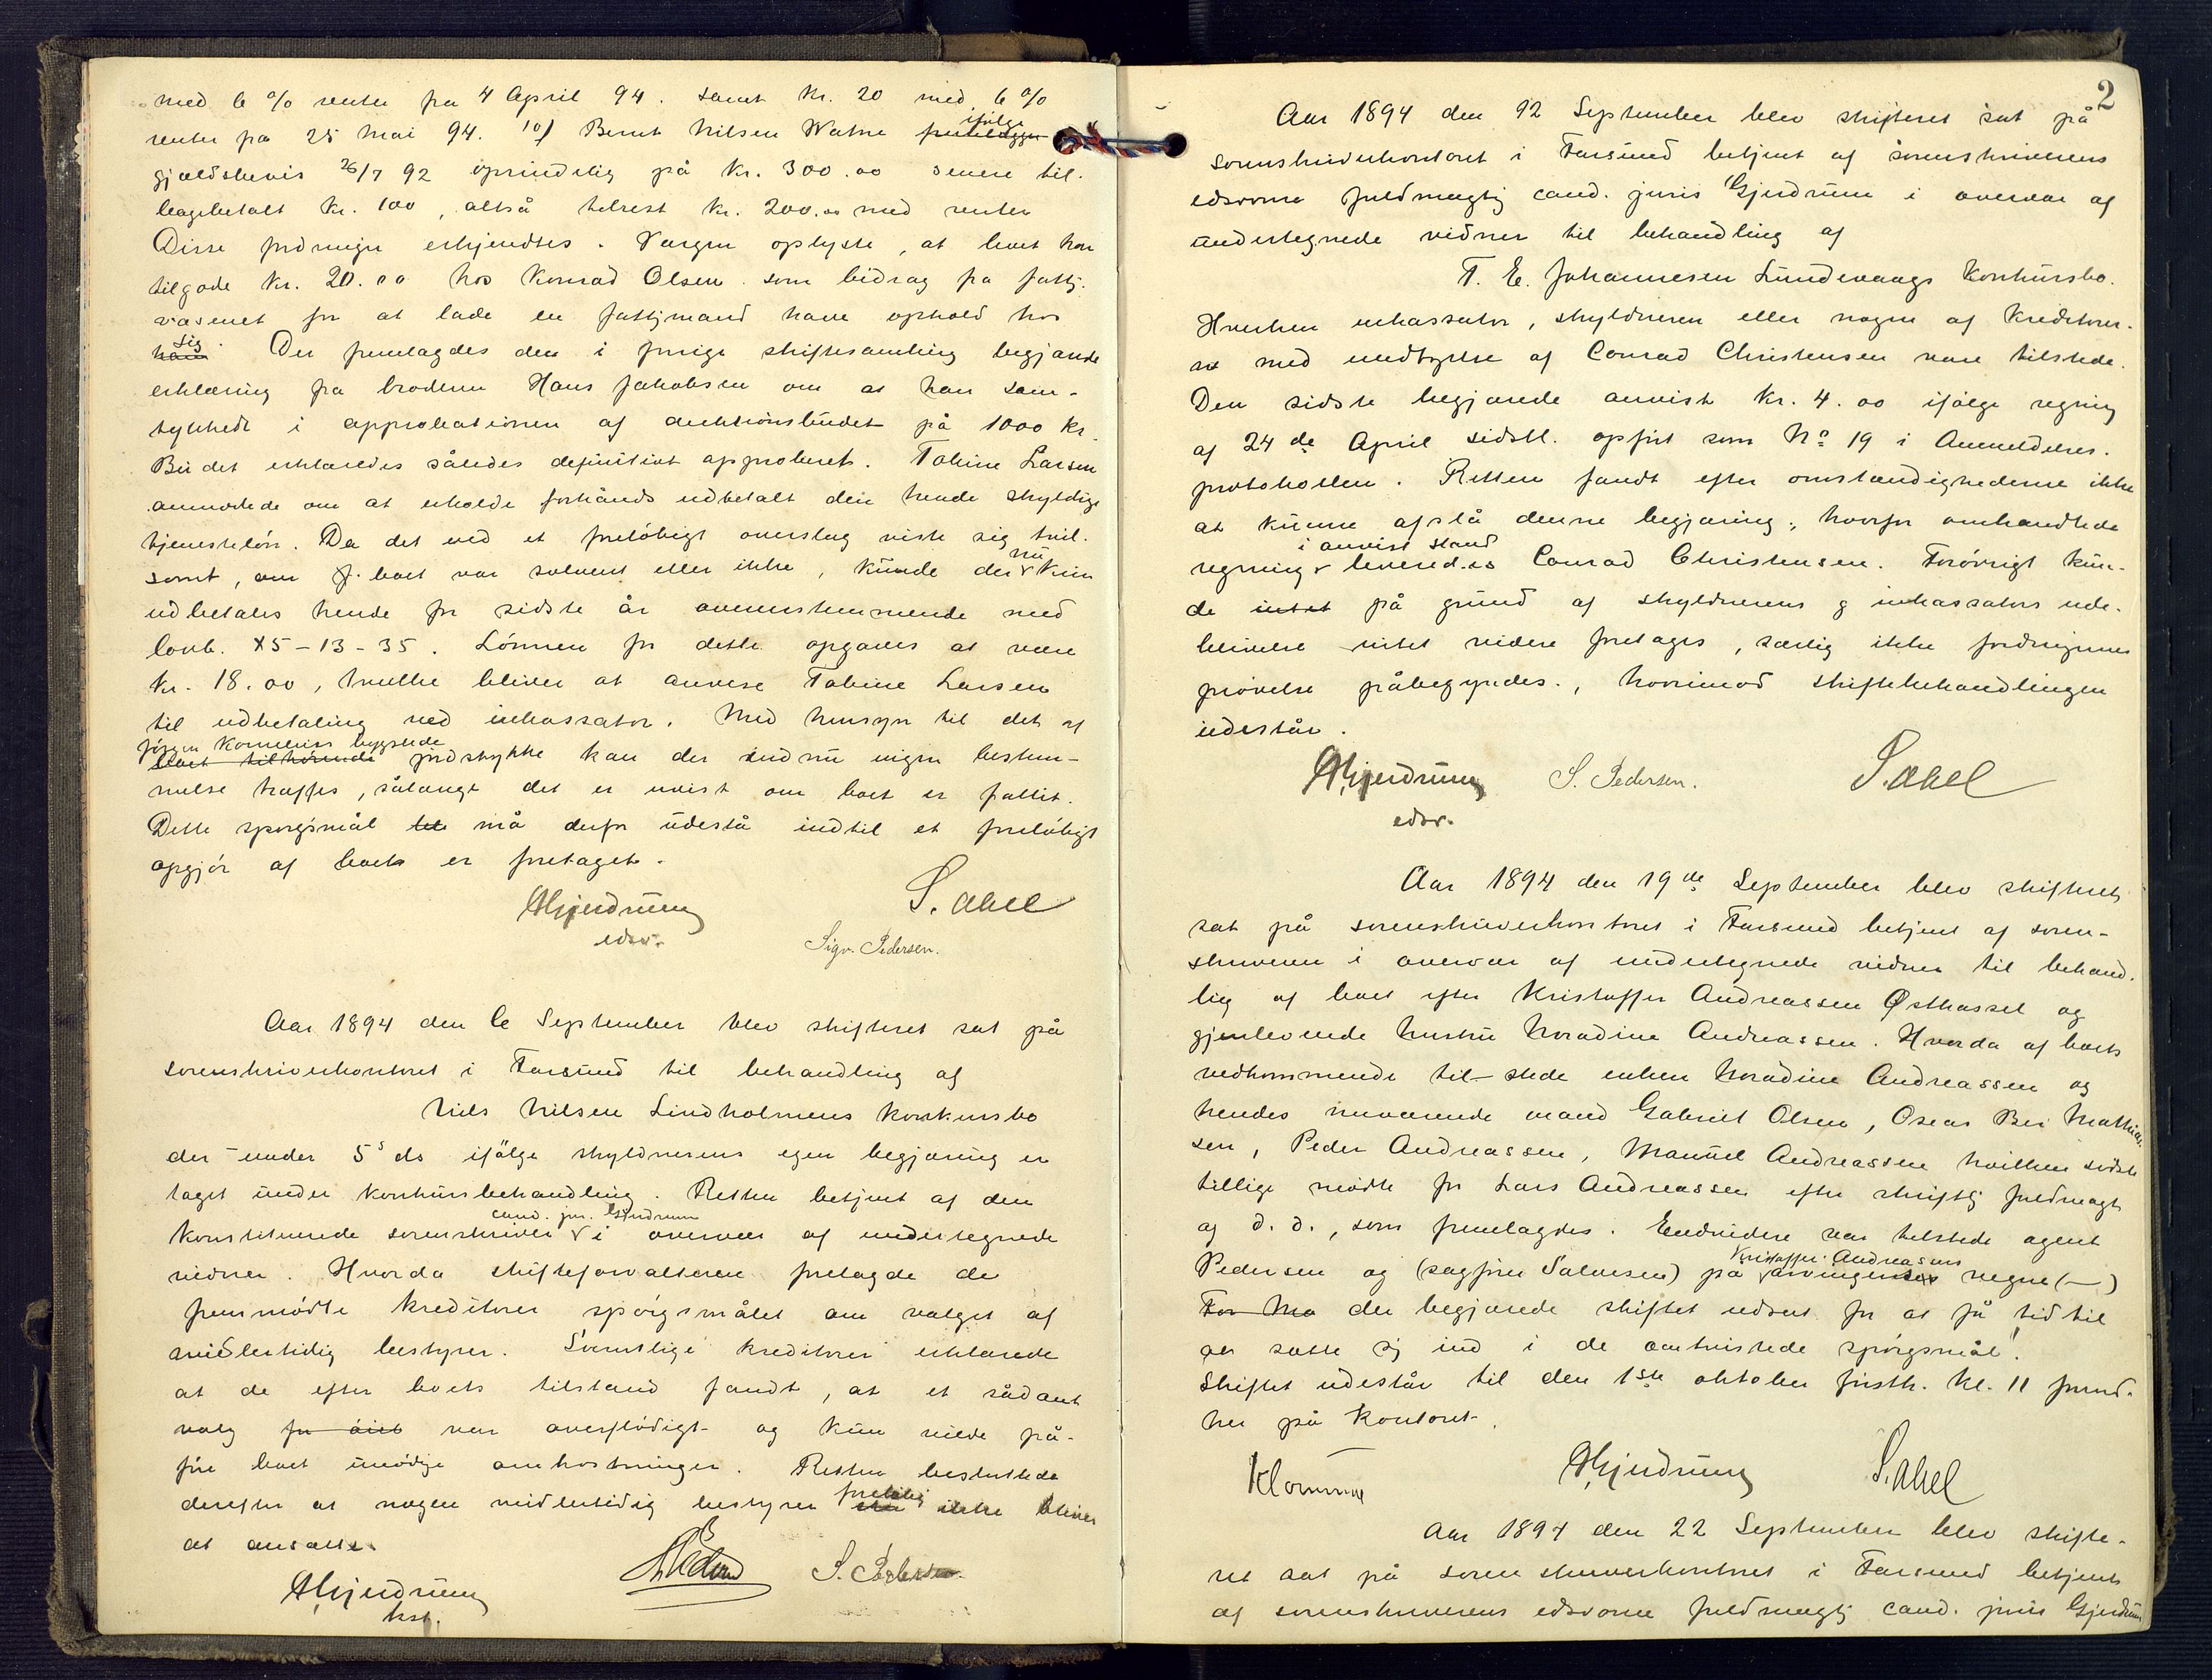 med 6 % renter fra 4 April 94. samt Kr. 20 med 6 %
renter fra 25 Mai 94. 10) Bernt Nilsen Watne ifølge
gjældsbevis 26/7 92 oprindelig på Kr. 300.00 senere til-
bagebetalt Kr. 100, altså tilrest Kr. 200.00 med renter
Disse fordringer erkjendtes. Værgen oplyste, at boet har
tilgode Kr. 20.00 hos Konrad Olsen som bidrag fra fattig-
væsenet for at lade en fattigmand have ophold hos
sig. Der fremlagdes den i forrige skiftesamling begjærede
erklæring fra broderen Hans Jakobsen om at han sam-
tykkede i approbationen af auktionsbudet på 1000 kr.
Budet erklæredes således definitivt approberet. Tobine Larsen
anmodede om at erholde forhånds udbetalt den hende skyldige
tjenesteløn. Da det ved et foreløbigt overslag viste sig tvil-
somt, om boet var solvent eller ikke, kunde der nu kun
udbetales hende for sidste år overensstemmende med
lovb. X5-13-35. Lønnen for dette opgaves at være
Kr. 18.00, hvilke bliver at anvise Tobine Larsen
til udbetaling ved inkassator. Med hensyn til det af
Jørgen Kornelius bygslede
boet tilhørende jordstykke kan der endnu ingen bestem-
melse træffes, sålænge det er uvist om boet er fallit.
Dette spørgsmål må derfor udestå indtil et foreløbigt
opgjør af boet er foretaget.
AGjerdrum S. Abel
edsv. Sigv. Pedersen.
Aar 1894 den 6 September blev skifteret sat på
sorenskriverkontoret i Farsund til behandling af
Niels Nilsen Lindholmens konkursbo
der under 5s ds ifølge skyldnerens egen begjæring er
taget under konkursbehandling. Retten betjent af den
cand. jur. Gjerdrum
konstituerede sorenskriver i overvær af undertegnede
vidner. Hvorda skifteforvalteren forelagde de
fremmødte kreditorer spørgsmålet om valget af
midlertidig bestyrer. Samtlige kreditorer erklærede
at de efter boets tilstand fandt, at et sådant
valg var overflødigt og kun vilde på-
føre boet unødige omkostninger. Retten besluttede
derefter at nogen midlertidig bestyrer foreløbig ikke bliver
at ansætte.
AGjerdrum S. Pedersen.
kst.
2
Aar 1894 den 12 September blev skifteret sat på
sorenskriverkontoret i Farsund betjent af sorenskriverens
edsvorne fuldmægtig cand. juris Gjerdrum i overvær af
undertegnede vidner til behandling af
T. E. Johannesen Lundevaags Konkursbo.
Hverken inkassator, skyldneren eller nogen af kreditorer-
ne med undtagelse af Conrad Christensen vare tilstede.
Den sidste begjærede anvist Kr. 4.00 ifølge regning
af 24de April sidstl. opført som No 19 i Anmeldelses-
protokollen. Retten fandt efter omstændighederne ikke
at kunne afslå denne begjæring, hvorfor omhandlede
i anvist stand
regning leveredes Conrad Christensen. Forøvrigt kun-
de intet på grund af skyldnerens og inkassators ude-
blivelse intet videre foretages, særlig ikke fordringernes
prøvelse påbegyndes, hvorimod skiftebehandlingen
udestår.
AGjerdrum S. Pedersen. S. Abel
edsv.
Aar 1894 den 19de September blev skifteret
sat på sorenskriverkontoret i Farsund betjent af soren-
skriveren i overvær af undertegnede vidner til behand-
lig af boet efter Kristoffer Andreassen Østhassel og
gjenlevende hustru Noradine Andreassen. Hvorda af boets
vedkommende tilstede enken Noradine Andreassen og
hendes nuværende mand Gabriel Olsen, Oscar Bei Mathias-
sen, Peder Andreassen, Manuel Andreassen hvilken sidste
tillige mødte for Lars Andreassen efter skriftlig fuldmagt
ag d. d., som fremlagdes. Endvidere var tilstede agent
Kristoffer Andreasens
Pedersen og (sagfører Salvesen) på arvingers vegne (—)
For Ma der begjærede skiftet udsat for at få tid til
at sætte sig ind i de omtvistede spørgsmål.
Skiftet udestår til den 1ste oktober førstk. kl. 11 formd.
her på kontoret.
Klomme AGjerdrum S. Abel
Aar 1894 den 22 September blev skifte-
ret sat på sorenskriverkontoret i Farsund betjent
af sorenskriverens edsvorne fuldmægtig cand. juris Gjerdrum